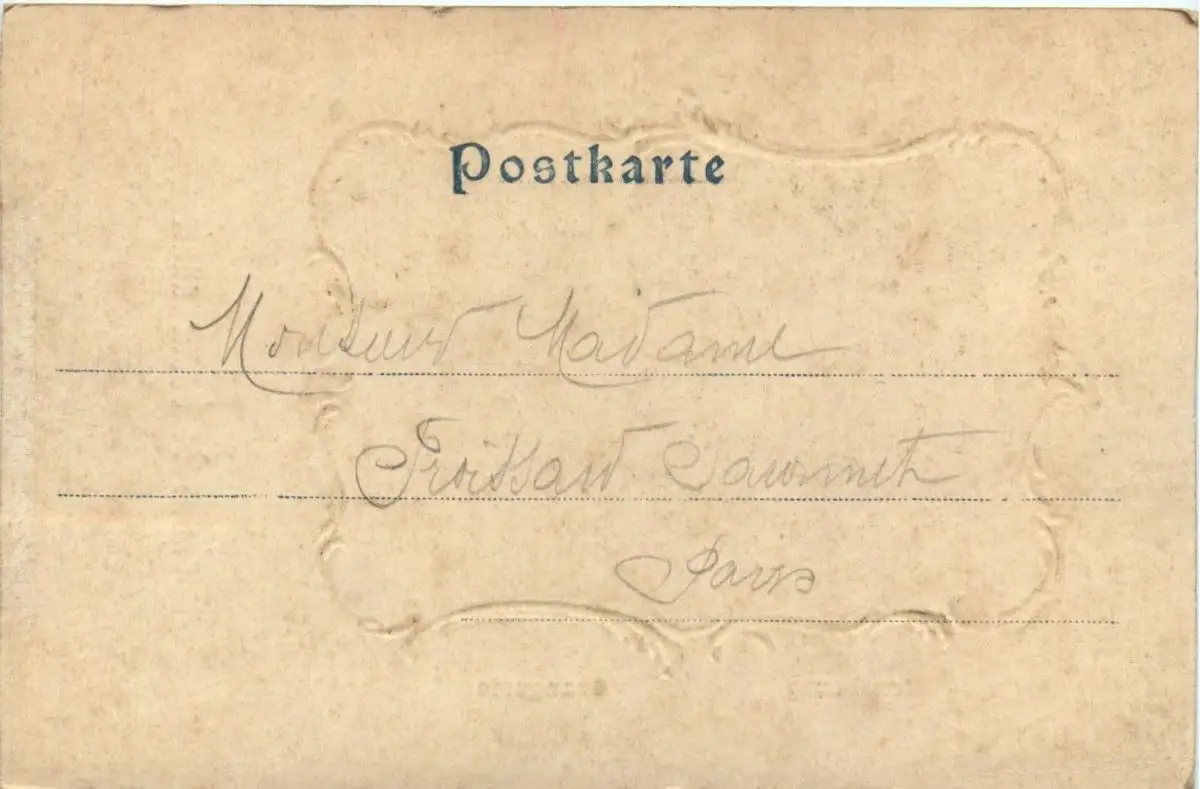 Postkarte
Monsieur Madame
Froissard
Paris